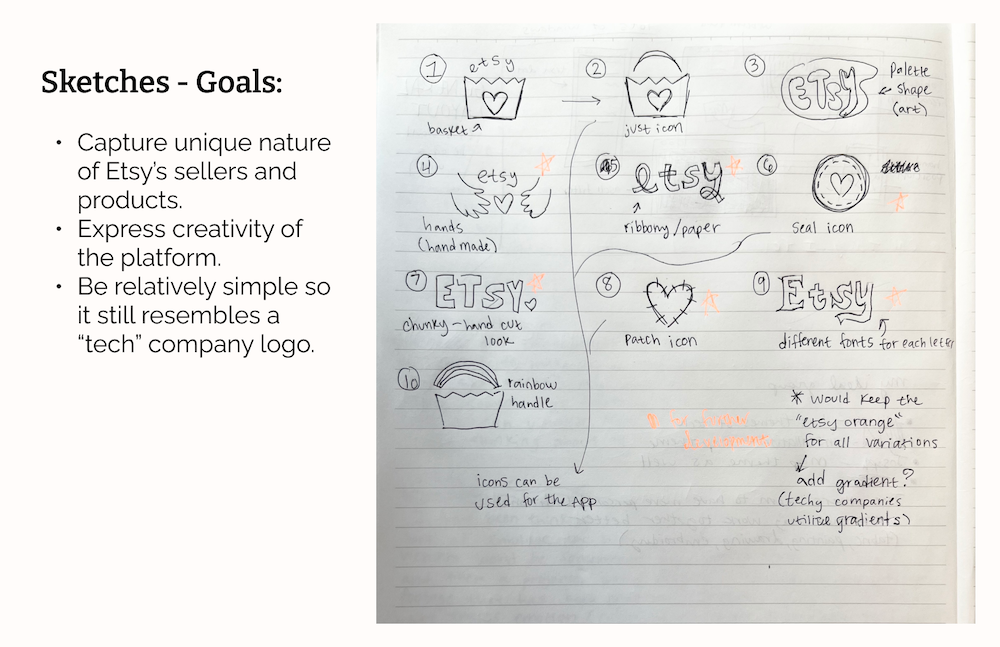 Sketches - Goals:
• Capture unique nature
of Etsy’s sellers and
products.
• Express creativity of
the platform.
• Be relatively simple so
it still resembles a
“tech” company logo.
1
etsy
basket
2
just icon
3
ETSY
Palette
shape
(art)
4
etsy
hands
(handmade)
5
etsy
ribbony/paper
6
seal icon
7
ETSY
chunky - hand cut
look
8
Patch icon
9
Etsy
different fonts for each letter
10
rainbow
handle
* would keep the
"etsy orange"
for all variations
add gradient?
(techy companies
utilize gradients)
icons can be
used for the App